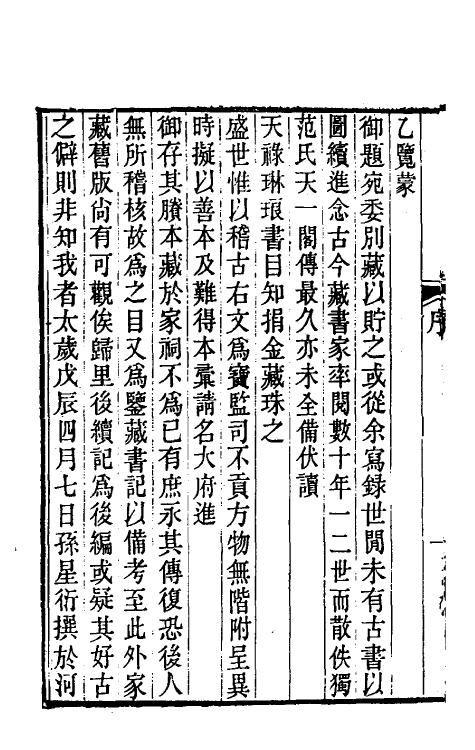 乙覽蒙
御題宛委別藏以貯之或從余寫録世閒未有古書以
圖續進念古今藏書家率閱數十年一二世而散佚獨
范氏天一閣傳最久亦未全備伏讀
天祿琳琅書目知捐金藏珠之
盛世惟以稽古右文爲寶監司不貢方物無階附呈異
時擬以善本及難得本彚請名大府進
御存其賸本藏於家祠不爲已有庶永其傳復恐後人
無所稽核故爲之目又爲鑒藏書記以備考至此外家
藏舊版尙有可觀俟歸里後續記爲後編或疑其好古
之僻則非知我者太歲戊辰四月七日孫星衍撰於河
序